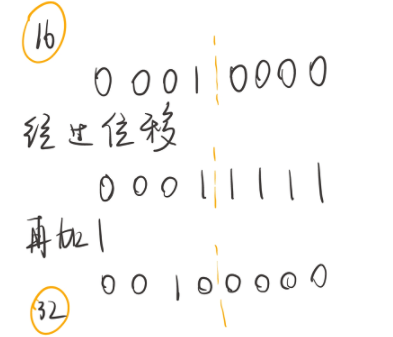 16
0 0 0 1 0 0 0 0
经过位移
0 0 0 1 1 1 1 1
再加1
0 0 1 0 0 0 0 0
32